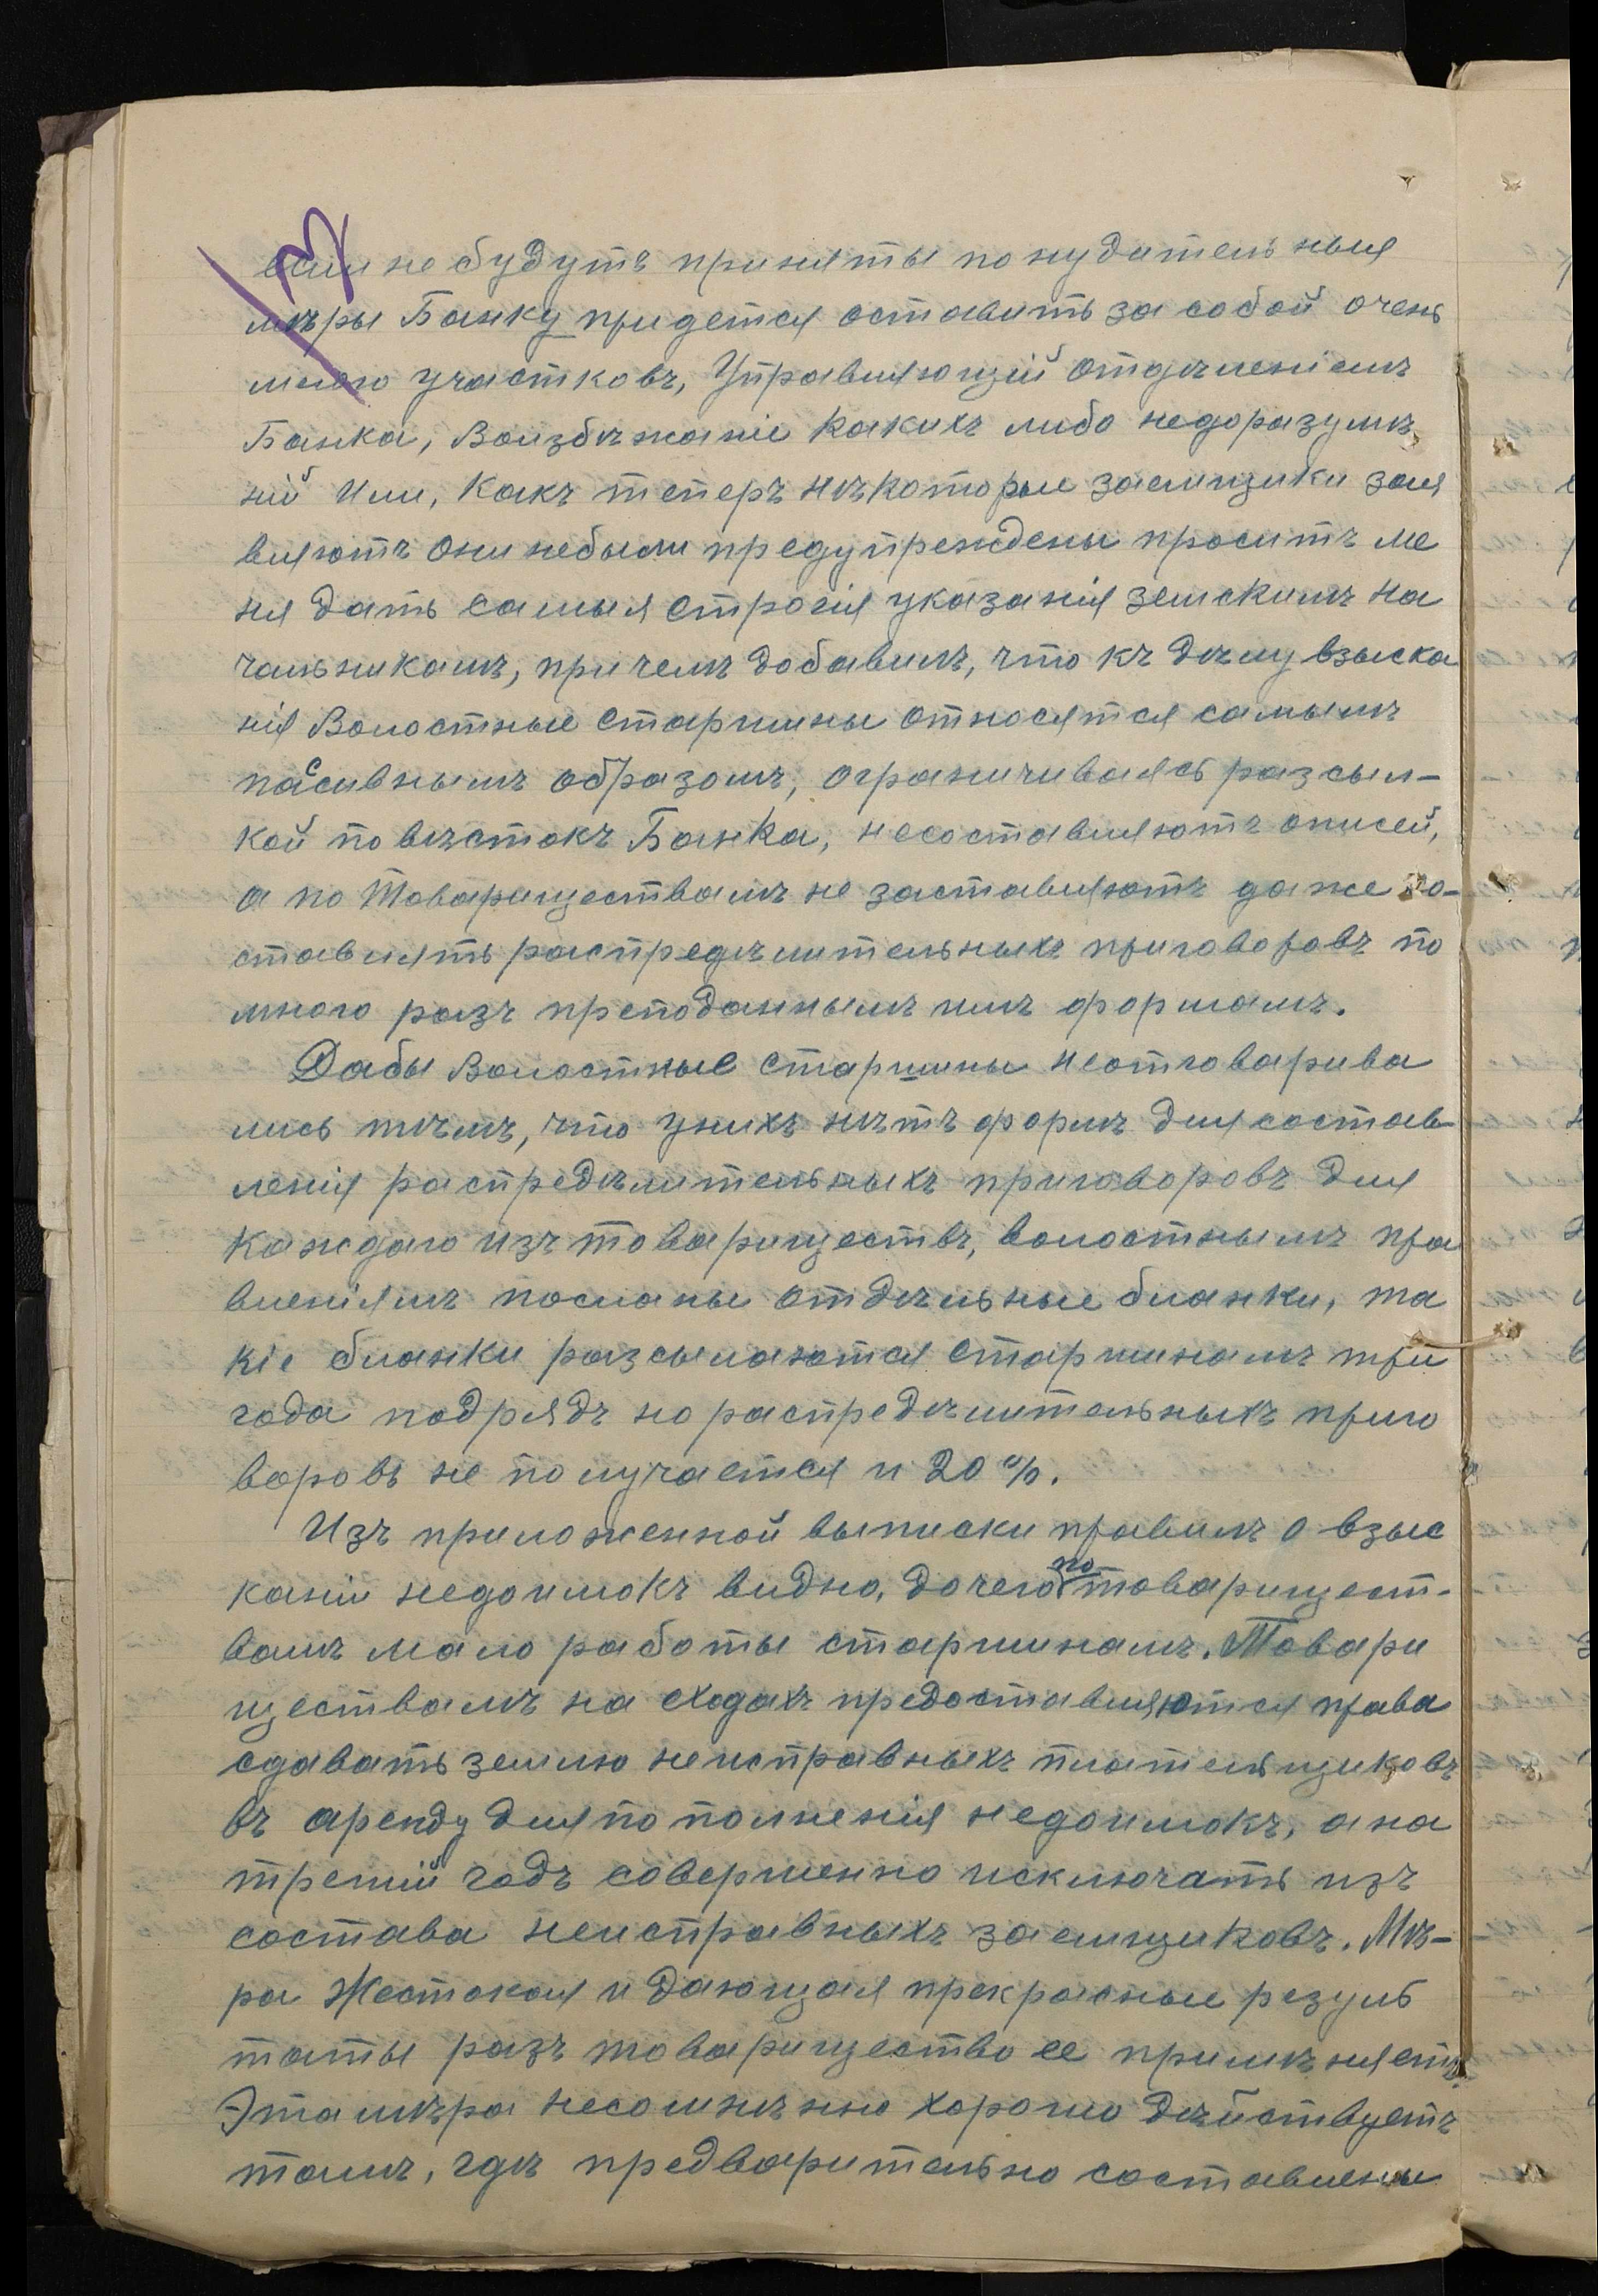 если не будутъ приняты понудительныя
мѣры Банку придется оставить за собой очень
много участковъ, Управляющій Отдѣленіемъ
Банка, воизбѣжаніе какихъ либо недоразумѣ
ній или, какъ теперъ нѣкоторые заемщики заяв
вляютъ они небыли предупреждены проситъ ме
ня дать самыя строгія указанія земскимъ на
чальникамъ, при чемъ добавилъ, что къ дѣлу взыска
нія Волостные Старшины относятся самымъ
пассивнымъ образомъ, ограничиваясь разсыл-
кой повѣстокъ Банка, несоставляютъ описей,
а по Товариществамъ не заставляютъ даже со-
ставлять распредѣлительныхъ приговоровъ по
много разъ преподаннымъ имъ формамъ.
Дабы Волостные Старшины неотговарива
лись тѣмъ, что унихъ нѣтъ формъ для состав-
ленія распредѣлительныхъ приговоровъ для
каждаго изъ товариществъ, волостнымъ пра
вленіямъ посланы отдѣльные бланки, та
кіе бланки разсылаются Старшинамъ три
года подрядъ но распредѣлительныхъ приго
воровъ не получается и 20%.
Изъ приложенной выписки правилъ о взыс
каніи недоимокъ видно, дочего по товарищест-
вамъ мало работы старшинамъ. Товари
ществамъ на сходахъ предоставляются права
сдавать землю неисправныхъ плательщиковъ
въ аренду для пополненія недоимокъ, а на
третій годъ совершенно исключать изъ
состава неисправныхъ заемщиковъ. Мѣ-
ра Жестокая и дающая прекрасные резуль
таты разъ товарищество ее примѣняетъ.
Эта мѣра несомнѣнно хорошо дѣйствуетъ
тамъ, гдѣ предварительно составлены